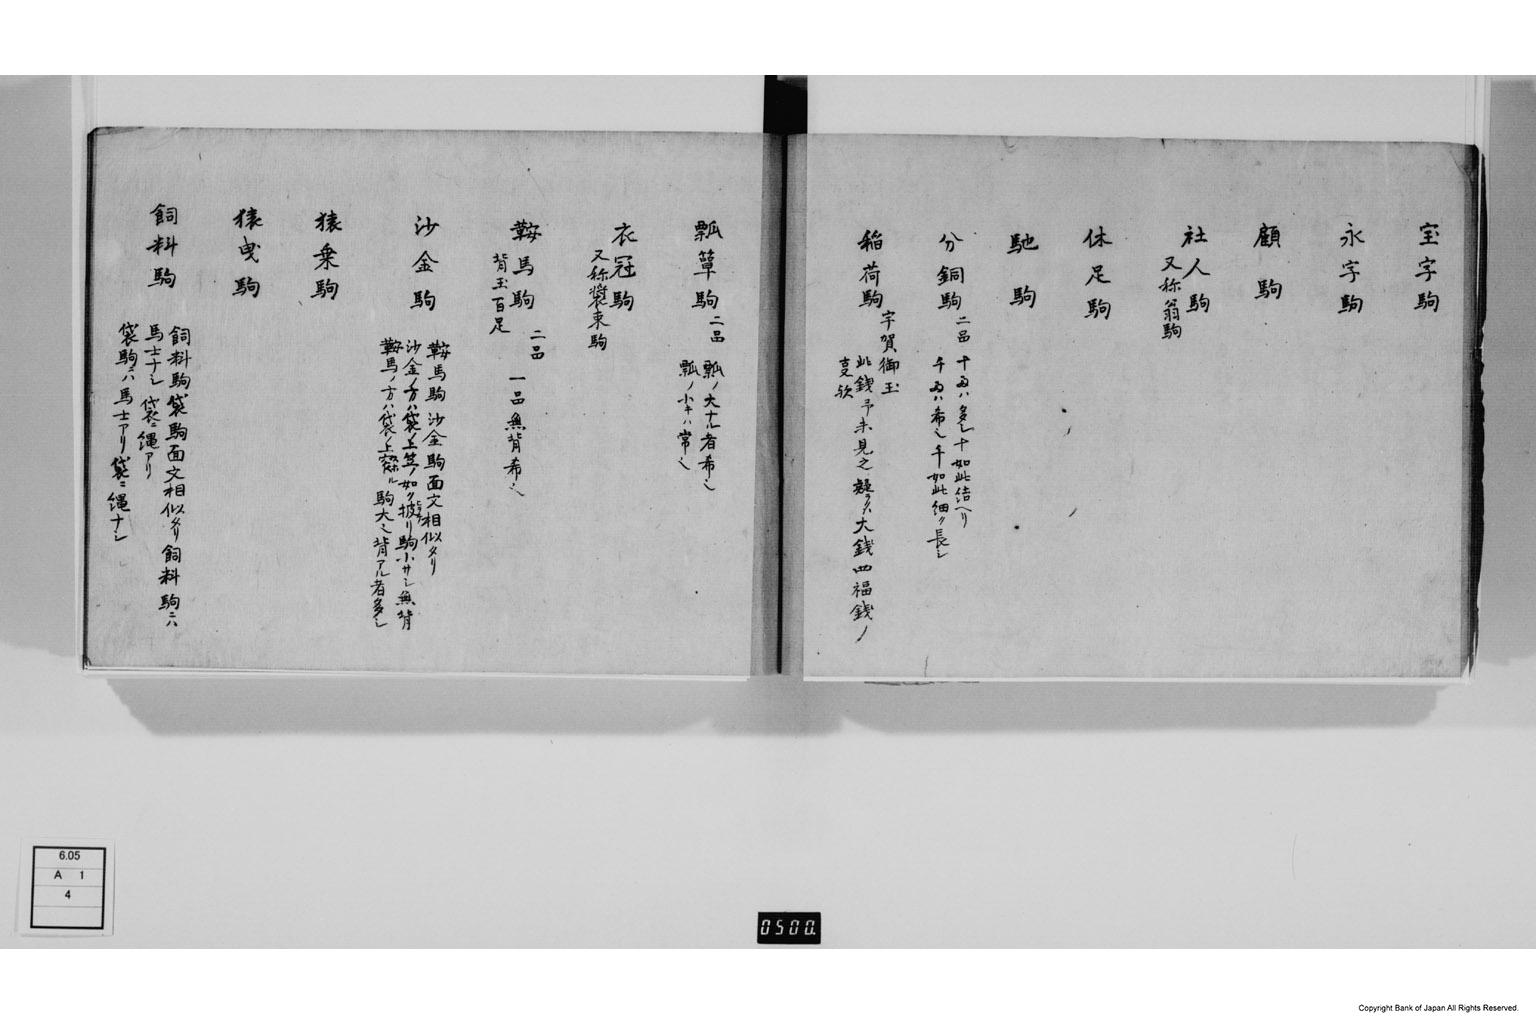 宝字駒
永字駒
顧駒
社人駒
又称翁駒
休足駒
馳駒
分銅駒
二品 十
ハ多シ十如此結ヘリ
千
ハ希シ千如此細ク長シ
稲荷駒
宇賀御玉
此銭予未見之疑ラクハ大銭四福銭ノ
支欤
瓢箪駒
二品 瓢ノ大ナル者希シ
瓢ノ小キハ常シ
衣冠駒
又称装束駒
鞍馬駒
二品 一品無背希シ
背玉百足
沙金駒
鞍馬駒沙金駒面文相似タリ
沙金ノ方ハ袋ノ上笠ノ如ク披リ駒小サシ無背
鞍馬ノ方ハ袋ノ上
ル駒大シ背アル者多シ
猿乗駒
猿曳駒
飼料駒
飼料駒袋駒面文相似タリ飼料駒ニハ
馬士ナシ袋ニ縄アリ
袋駒ニハ馬士アリ袋ニ縄ナシ
6.05
A 1
4
0500.
Copyright Bank of Japan All Rights Reserved.